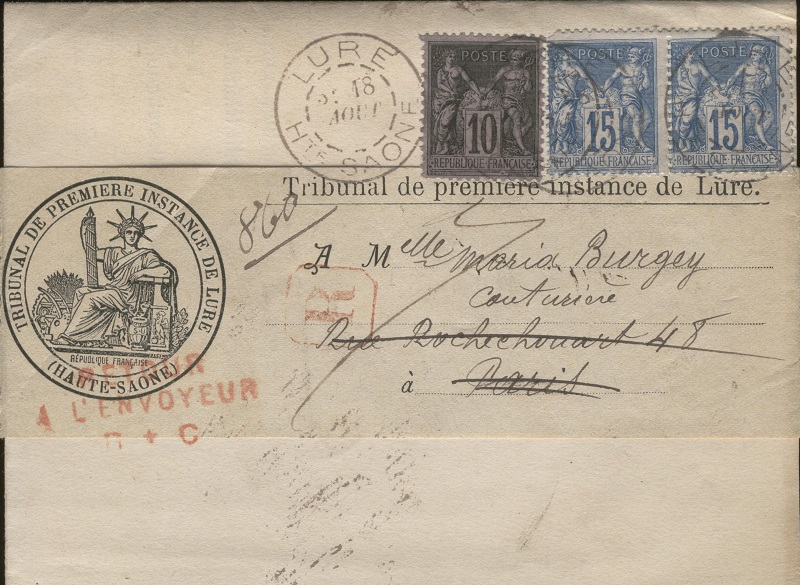 LURE
18
AOUT
Hte SAONE
POSTE
10
REPUBLIQUE FRANÇAISE
POSTE
15
REPUBLIQUE FRANÇAISE
POSTE
15
REPUBLIQUE FRANÇAISE
Tribunal de première instance de Lure.
TRIBUNAL DE PREMIERE INSTANCE DE LURE
REPUBLIQUE FRANÇAISE
(HAUTE-SAONE)
860
A Melle Maria Burgey
Couturière
R
Rue Rochechouart 48
à Paris
RETOUR
A L'ENVOYEUR